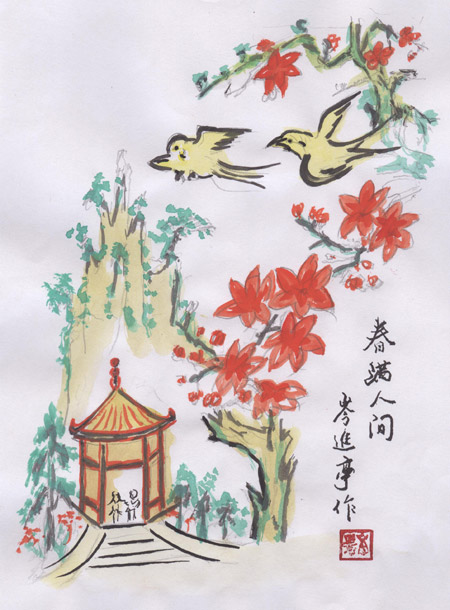 春满人间
岑進亭作